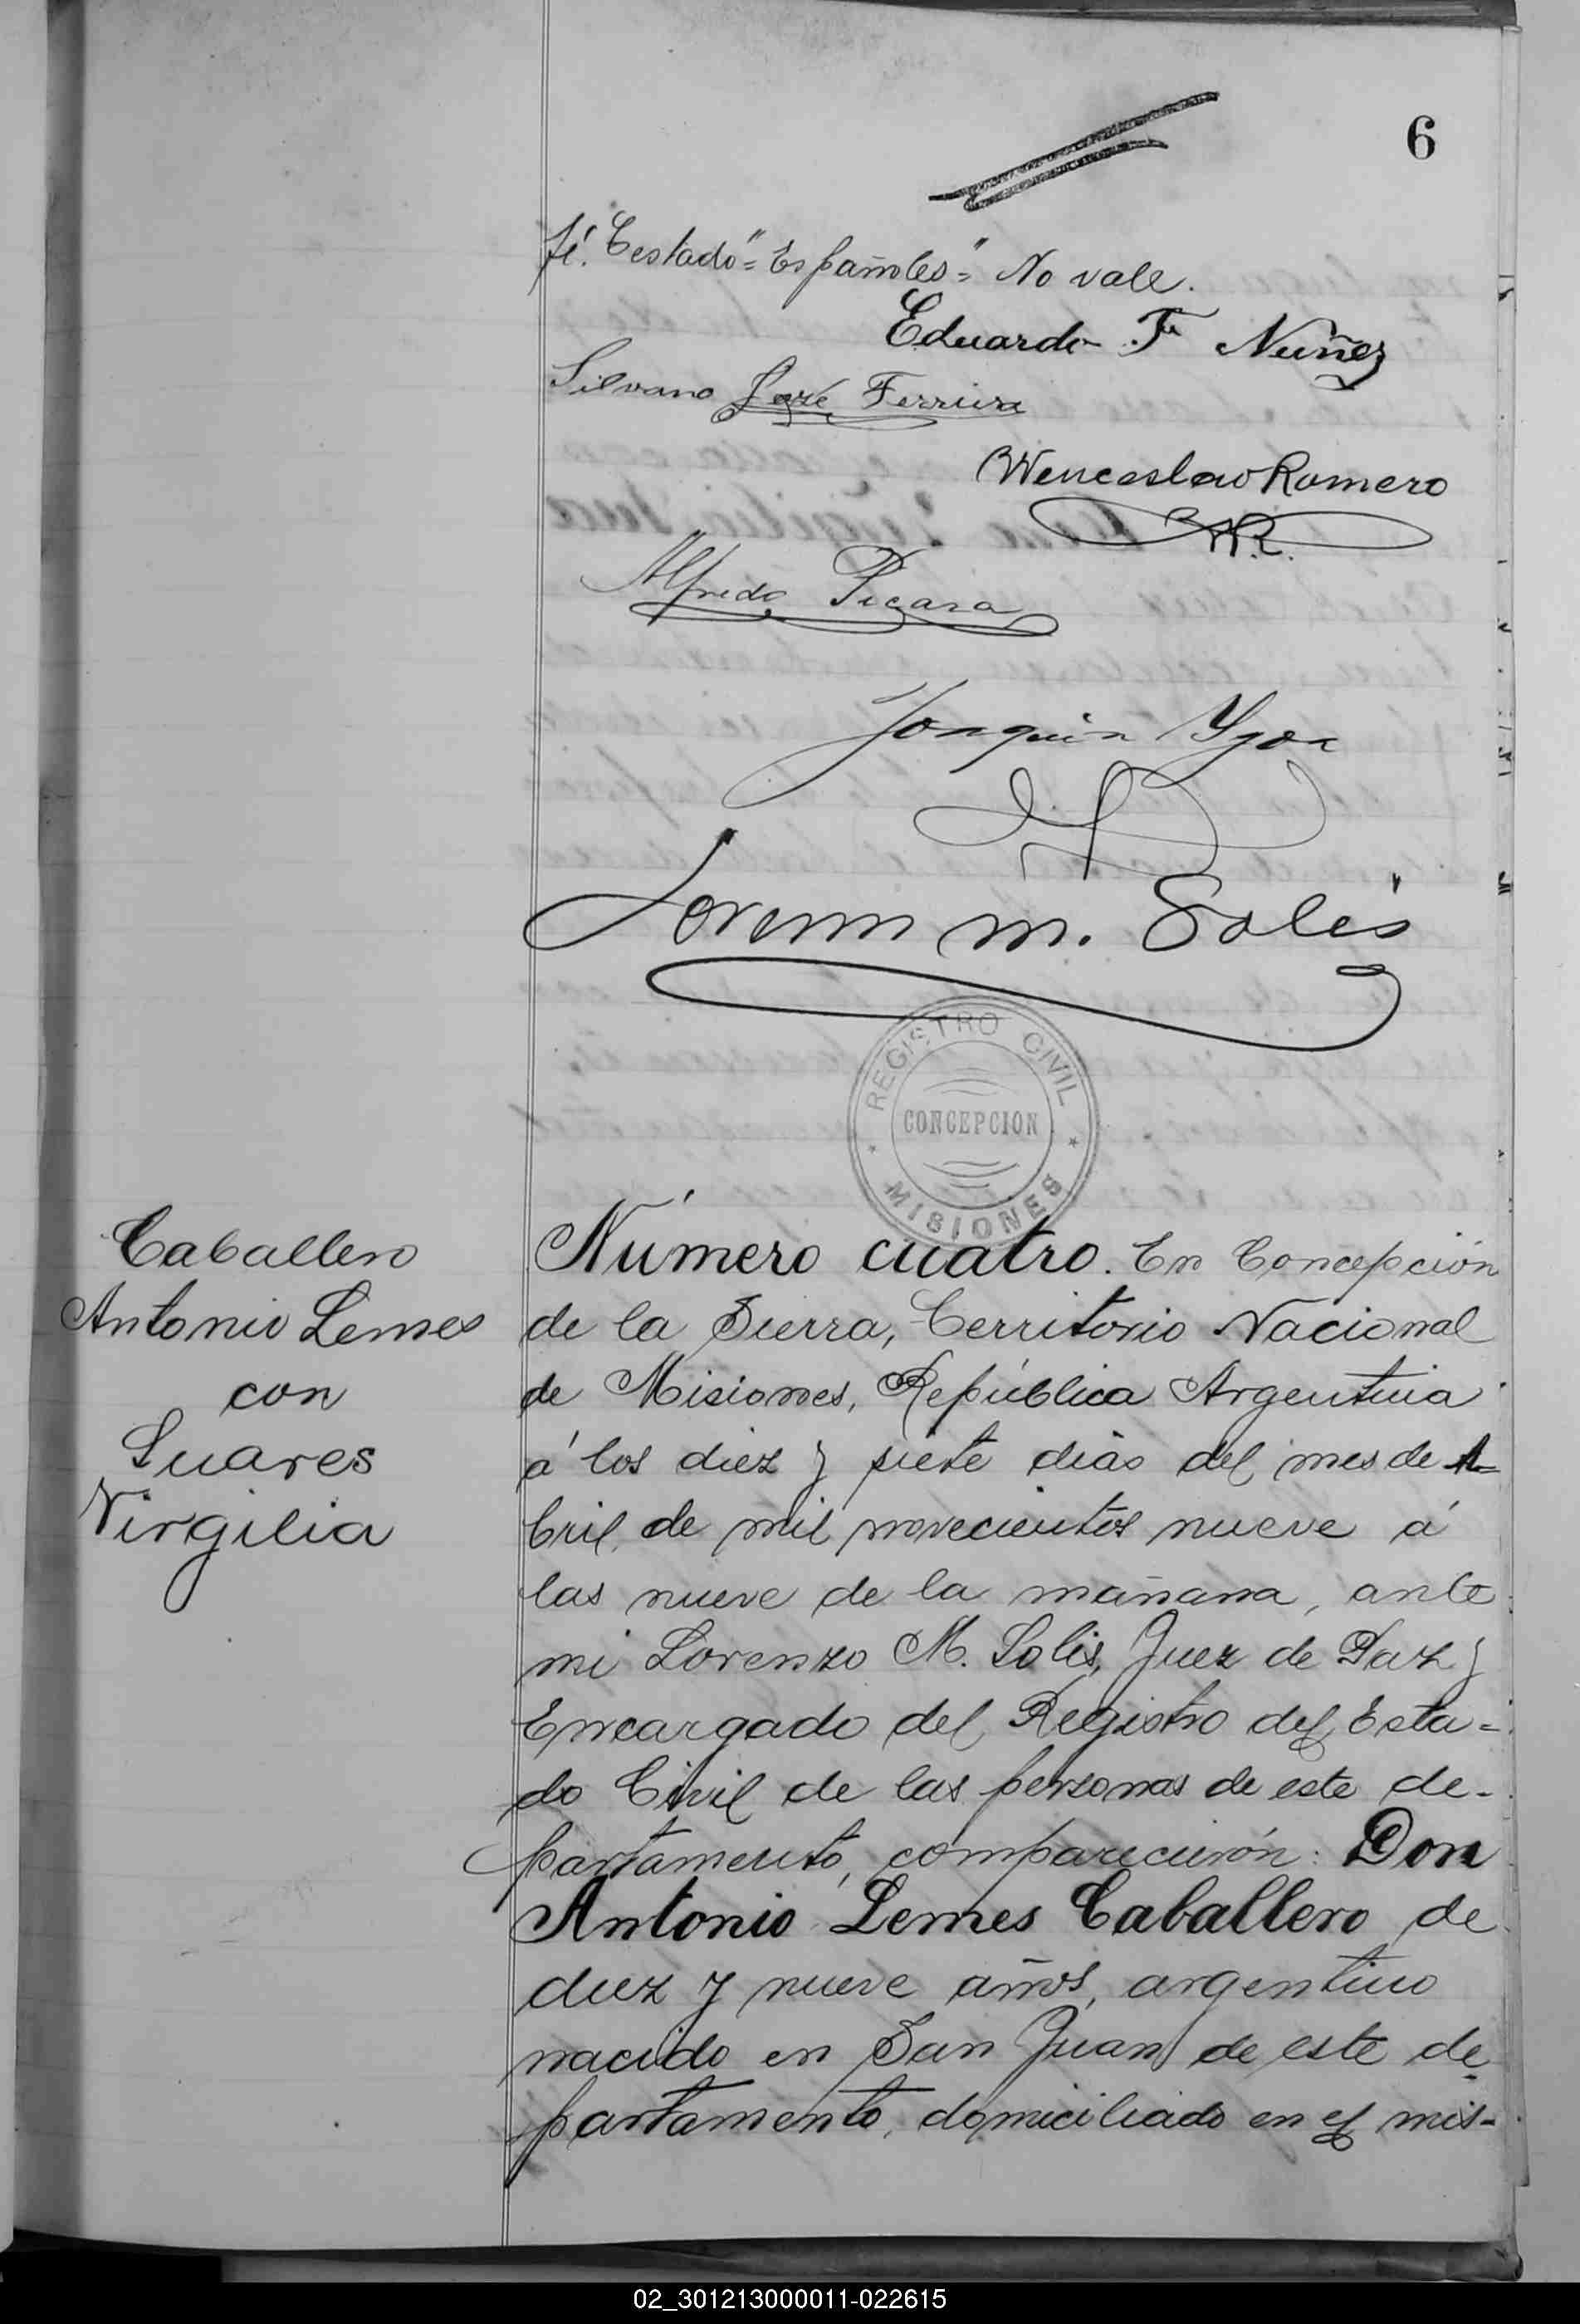 6
fé. Testado "=Españoles=" No vale.
Eduardo F. Nuñez
Silvano José Ferreira
Wenceslao Romero
W.R.
Alfredo
Joaquin
Lorenzo M. Solis
REGISTRO CIVIL
CONCEPCION
MISIONES
Caballero
Antonio Lemes
con
Suares
Virgilia
Número cuatro. En Concepción
de la Sierra, Territorio Nacional
de Misiones, República Argentina
á los diez y siete dias del mes de A=
bril de mil novecientos nueve á
las nueve de la mañana, ante
mi Lorenzo M. Solis, Juez de Paz y
Encargado del Registro del Esta=
do Civil de las personas de este de-
partamento, comparecieron: Don
Antonio Lemes Caballero de
diez y nueve años, argentino
nacido en San Juan de este de
partamento, domiciliado en el mis-
02_301213000011-022615